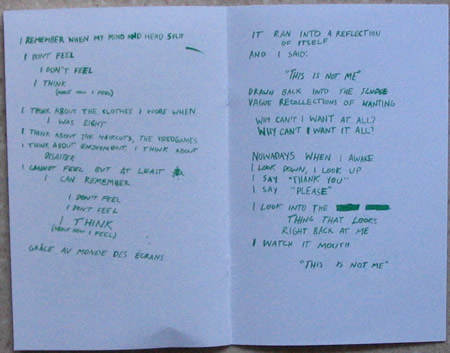 I REMEMBER WHEN MY MIND AND HEAD SPLIT
I DON'T FEEL
I DON'T FEEL
I THINK
(ABOUT HOW I FEEL)
I THINK ABOUT THE CLOTHES I WORE WHEN
I WAS EIGHT
I THINK ABOUT THE HAIRCUTS, THE VIDEOGAMES
I THINK ABOUT ENJOYMENT. I THINK ABOUT
DISASTER
I CANNOT FEEL BUT AT LEAST
I CAN REMEMBER
I DON'T FEEL
I DON'T FEEL
I THINK
(ABOUT HOW I FEEL)
GRÂCE AU MONDE DES ÉCRANS
IT RAN INTO A REFLECTION
OF ITSELF
AND I SAID:
"THIS IS NOT ME"
DRAWN BACK INTO THE SLUDGE
VAGUE RECOLLECTIONS OF WANTING
WHY CAN'T I WANT AT ALL?
WHY CAN'T I WANT IT ALL?
NOWADAYS WHEN I AWAKE
I LOOK DOWN, I LOOK UP
I SAY "THANK YOU"
I SAY "PLEASE"
I LOOK INTO THE
THING THAT LOOKS
RIGHT BACK AT ME
I WATCH IT MOUTH
"THIS IS NOT ME"